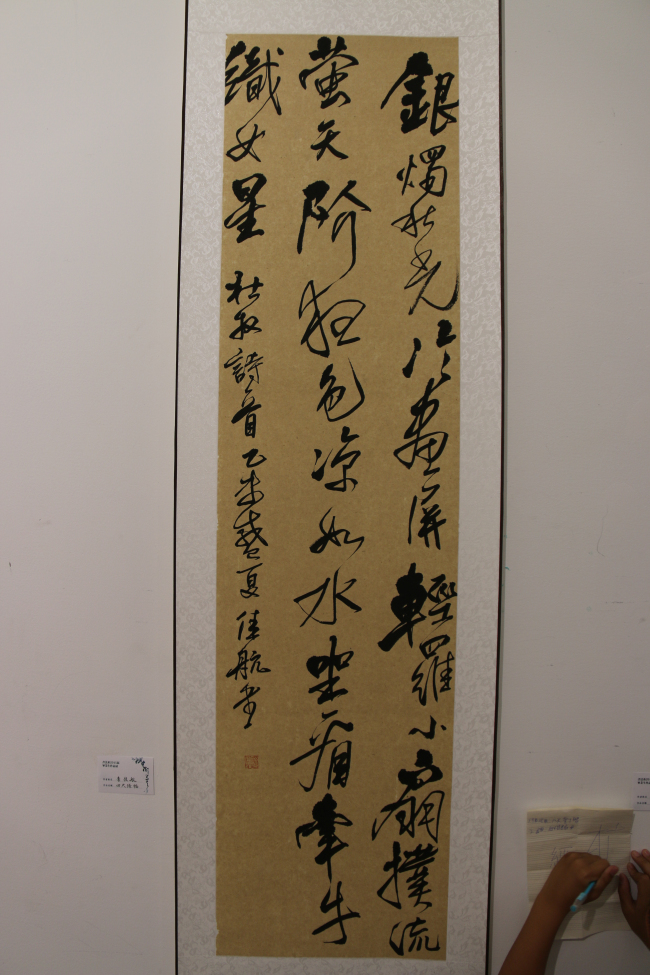 銀燭秋光冷畫屏輕羅小扇撲流
萤天阶夜色凉如水坐看牽牛
織女星 杜牧詩一首 乙未盛夏 佳航書